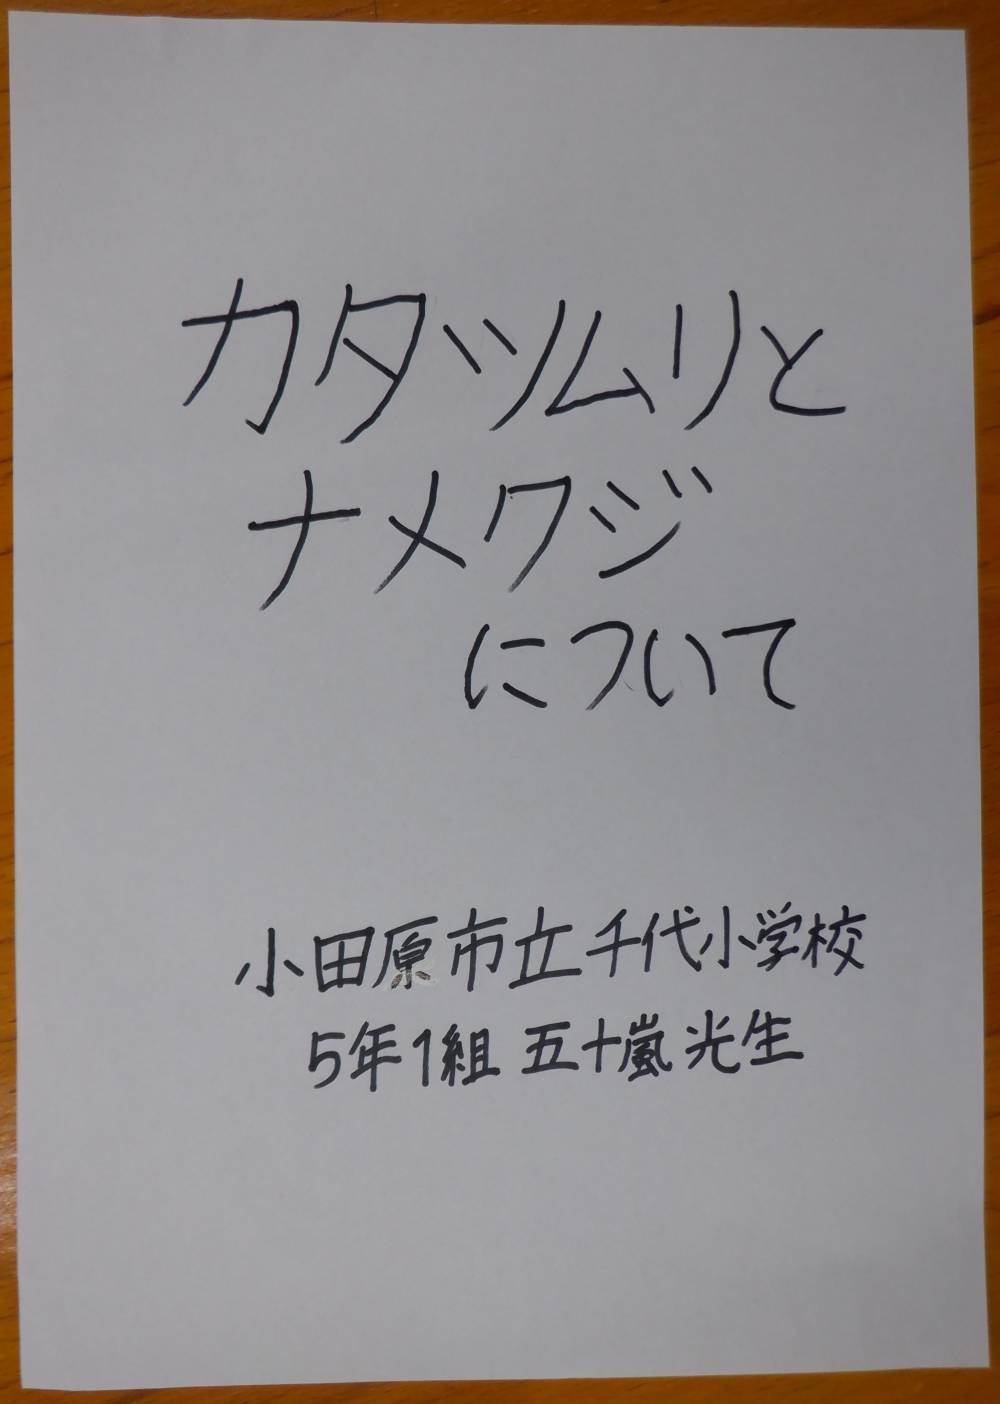 カタツムリと
ナメクジ
について
小田原市立千代小学校
5年1組 五十嵐光生